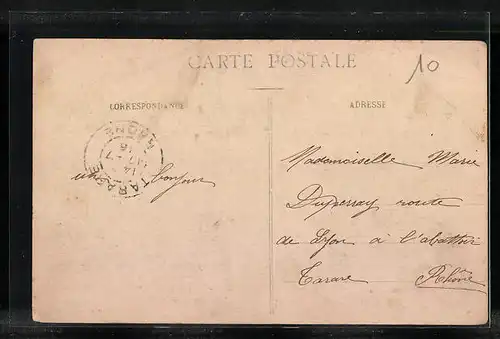 CARTE POSTALE
10
CORRESPONDANCE
ADRESSE
TARARE
RHONE
14
16
un bonjour
Mademoiselle Marie
Duperray route
de Lyon à l'abattoir
Tarare Rhône